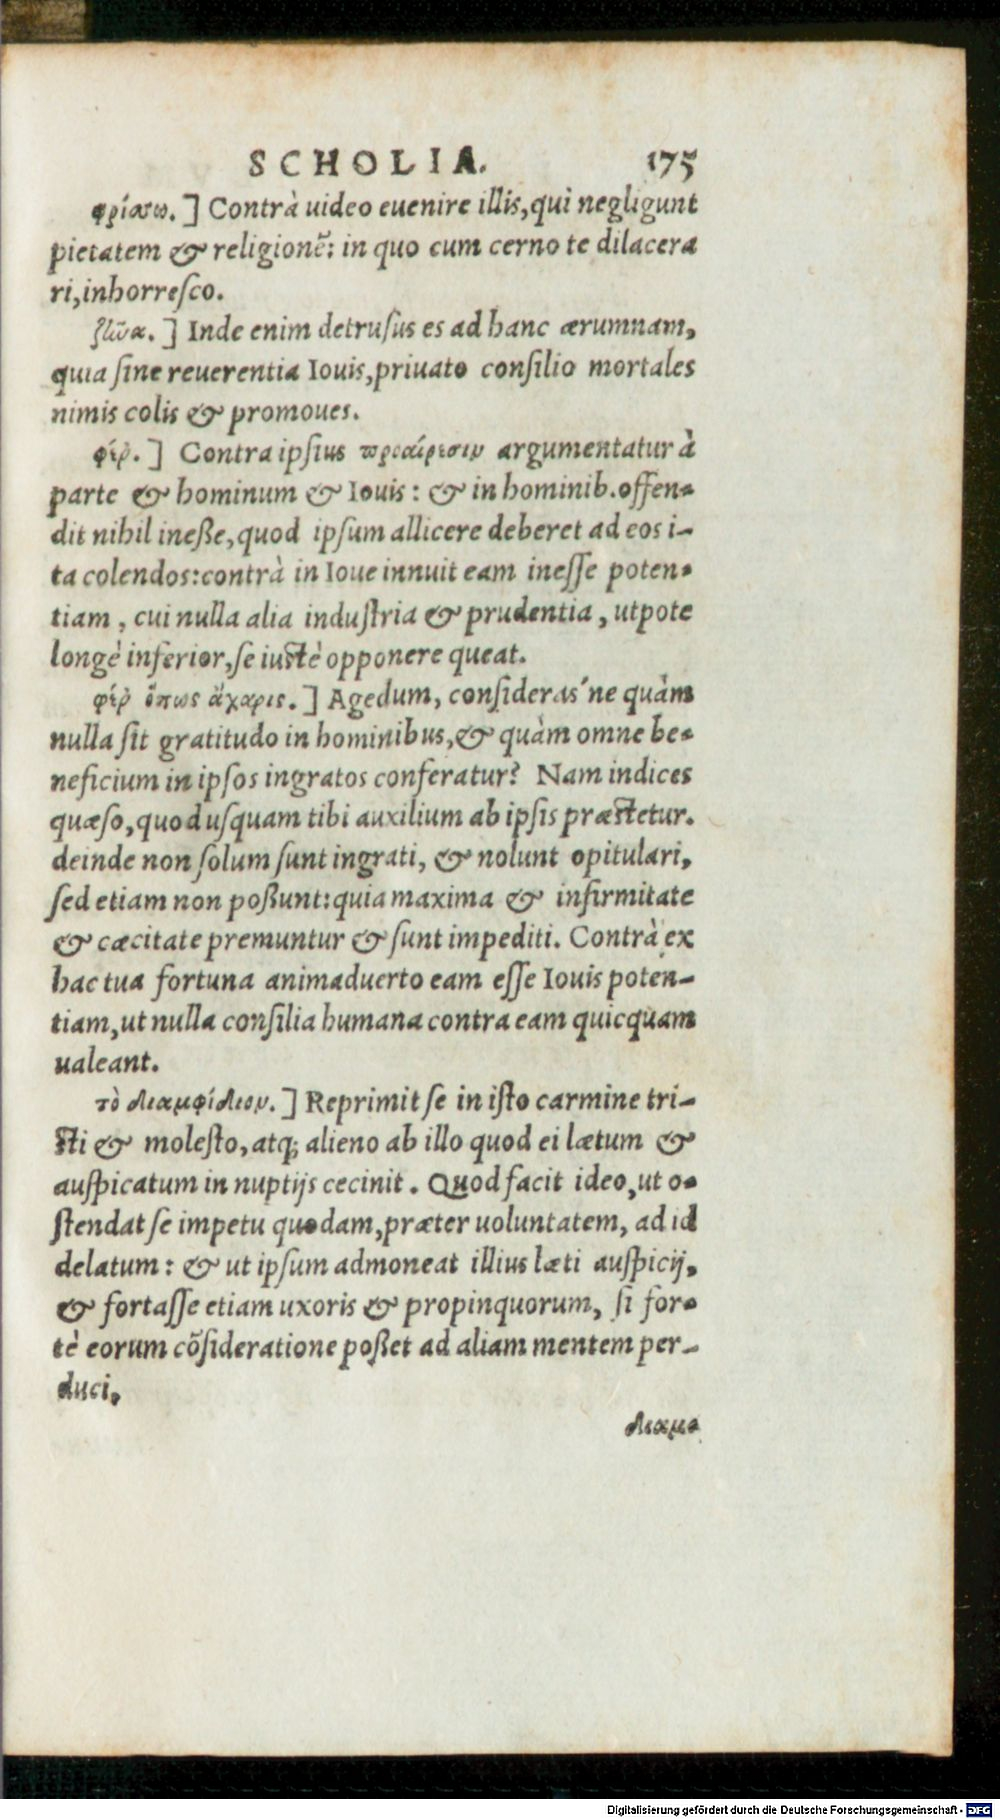 SCHOLIA. 175
φρίσσω.] Contrà uideo euenire illis, qui negligunt
pietatem & religionē: in quo cum cerno te dilacera
ri, inhorresco.
ζῆνα.] Inde enim detrusus es ad hanc ærumnam,
quia sine reuerentia Iouis, priuato consilio mortales
nimis colis & promoues.
φέρ.] Contra ipsius προαίρεσιν argumentatur à
parte & hominum & Iouis: & in hominib. offen-
dit nihil inesse, quod ipsum allicere deberet ad eos i-
ta colendos: contrà in Ioue innuit eam inesse poten-
tiam, cui nulla alia industria & prudentia, utpote
longè inferior, se iustè opponere queat.
φέρ ὅπως ἄχαρις.] Agedum, consideras'ne quàm
nulla sit gratitudo in hominibus, & quàm omne be-
neficium in ipsos ingratos conferatur? Nam indices
quæso, quod usquam tibi auxilium ab ipsis præstetur.
deinde non solum sunt ingrati, & nolunt opitulari,
sed etiam non possunt: quia maxima & infirmitate
& cæcitate premuntur & sunt impediti. Contrà ex
hac tua fortuna animaduerto eam esse Iouis poten-
tiam, ut nulla consilia humana contra eam quicquam
ualeant.
τὸ διαμφίδιον.] Reprimit se in isto carmine tri-
sti & molesto, atq; alieno ab illo quod ei lætum &
auspicatum in nuptijs cecinit. Quod facit ideo, ut o-
stendat se impetu quodam, præter uoluntatem, ad id
delatum: & ut ipsum admoneat illius læti auspicij,
& fortasse etiam uxoris & propinquorum, si for-
tè eorum cōsideratione posset ad aliam mentem per-
duci.
διαμ-
Digitalisierung gefördert durch die Deutsche Forschungsgemeinschaft - DFG